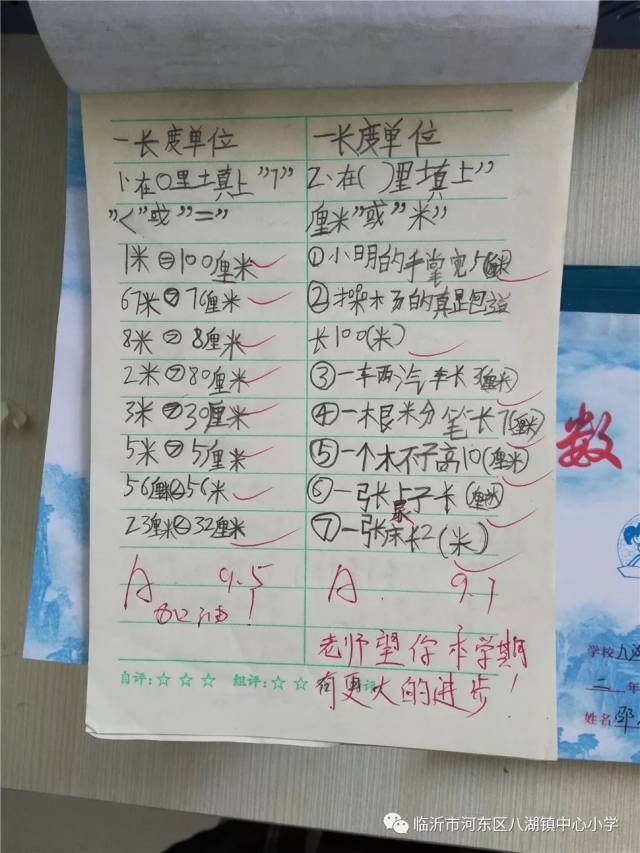 一长度单位
1、在○里土真上">"
"<"或"="
1米=100厘米
67米>76厘米
8米>8厘米
2米>80厘米
3米>30厘米
5米>5厘米
56厘米<56米
23厘米<32厘米
A 9.5
加油!
一长度单位
2、在( )里土真上"
厘米"或"米"
①小明的手掌宽5(厘米)
长100(米)
③一车两汽车长3(厘米)
④一木艮米分笔长7(厘米)
⑤一个木不子高10(厘米)
⑦一张床长2(米)
A. 9.7
老师望你本学期
有更大的进步!
自评:☆ ☆ ☆ 组评:☆ ☆
数
学校八湖
二 年
姓名
临沂市河东区八湖镇中心小学